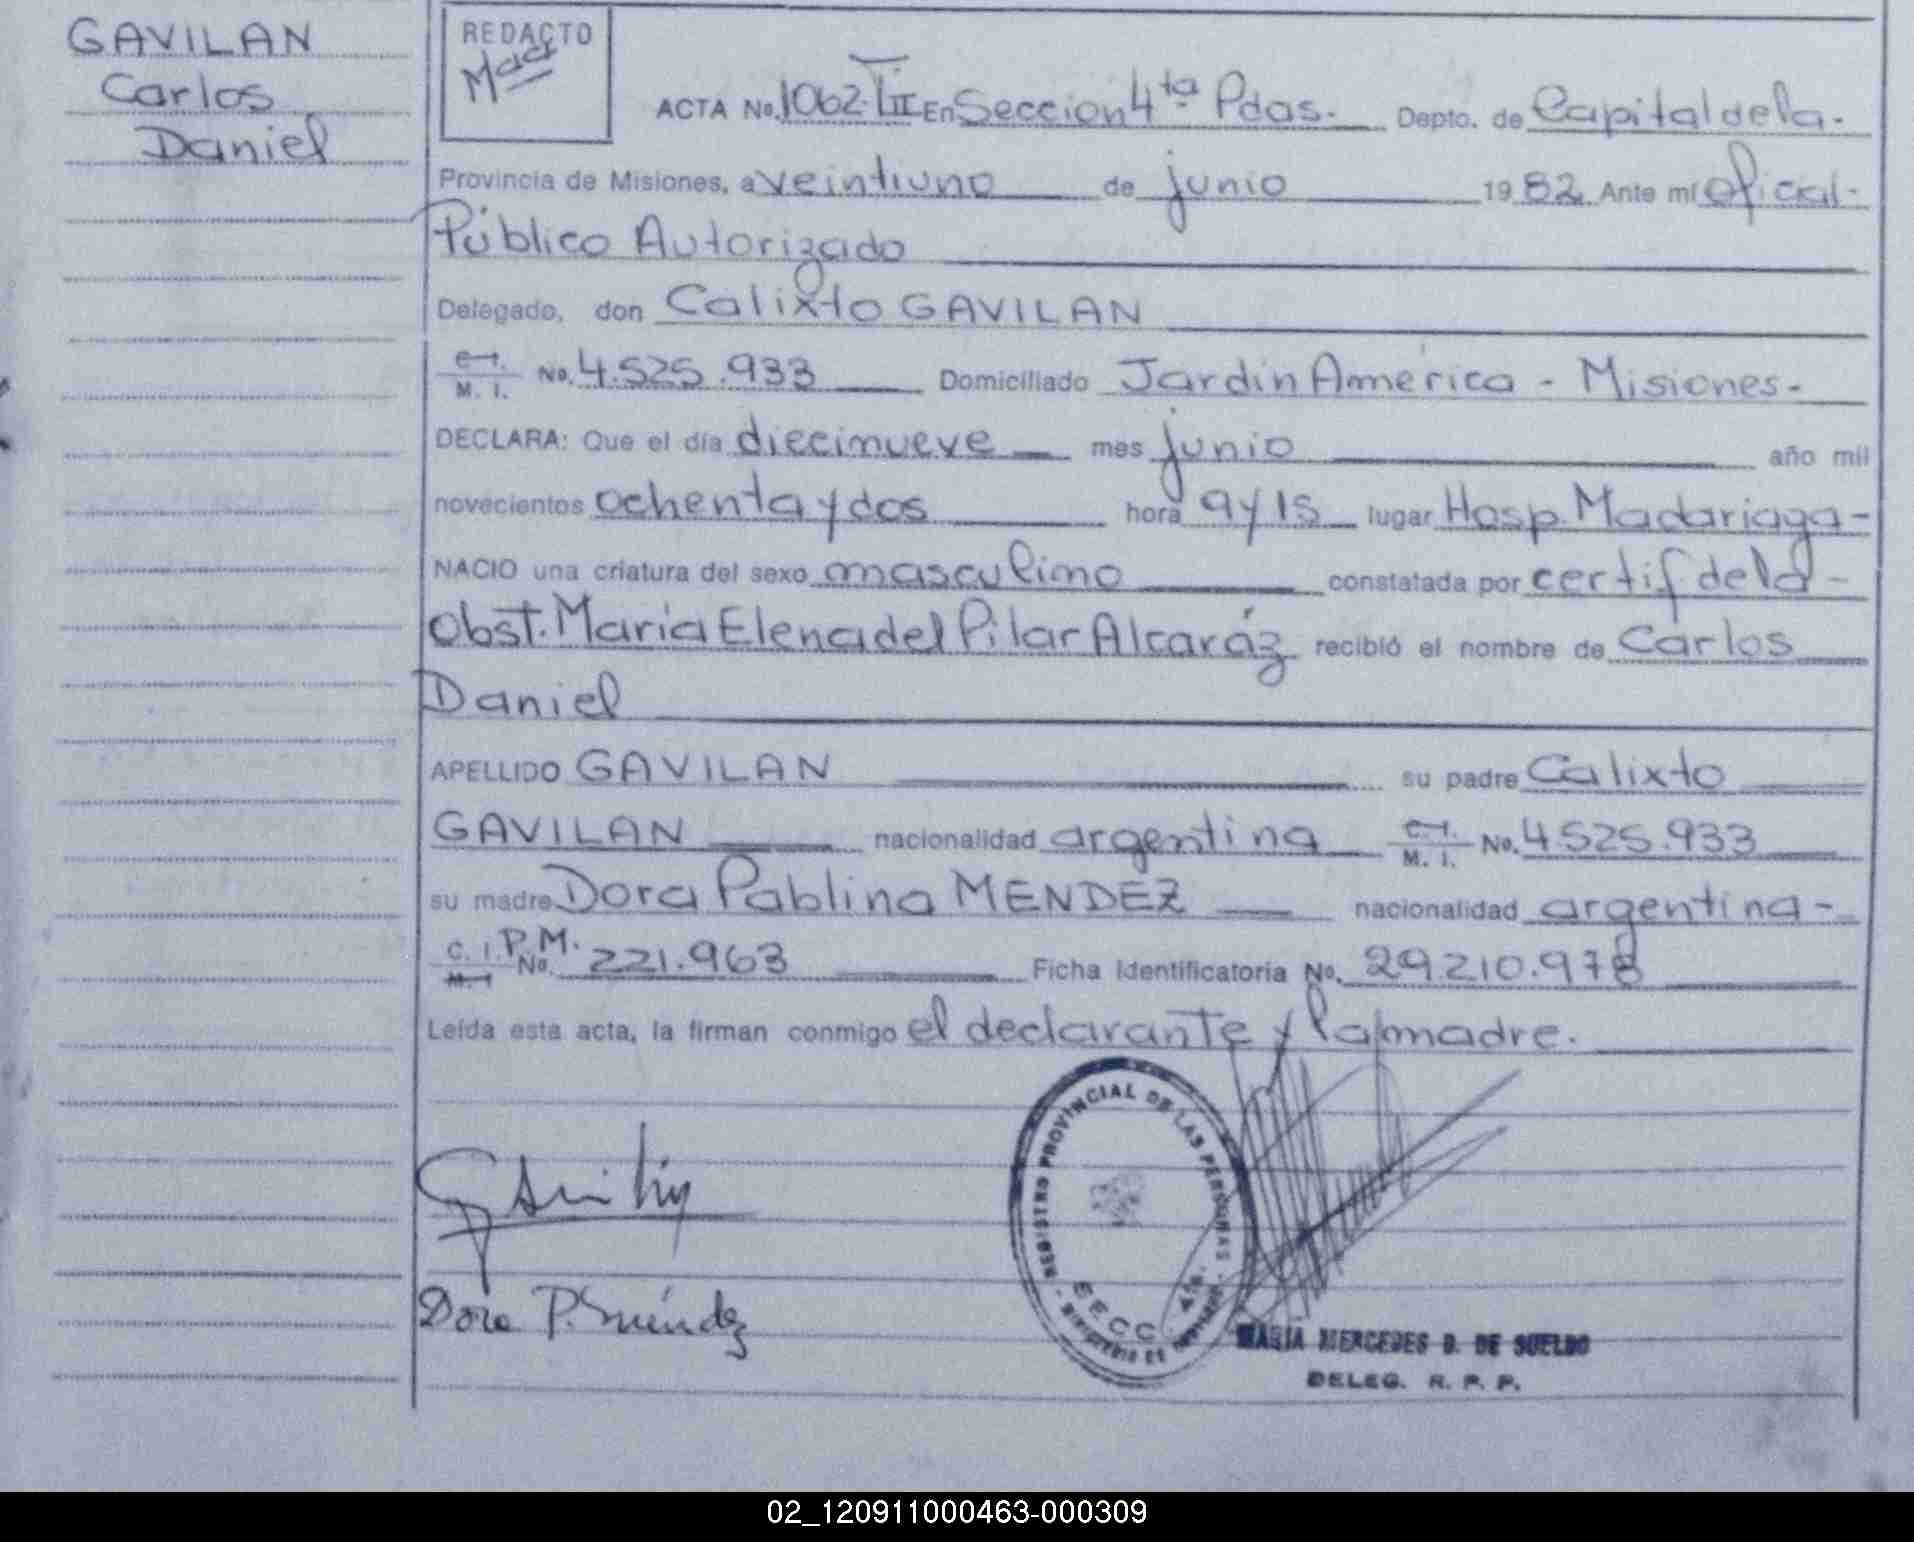 GAVILAN
Carlos
Daniel
REDACTO
ACTA No. 1062 TII En Seccion 4ta Pdas. Depto. de Capital de la.
Provincia de Misiones, a veintiuno de junio 1982 Ante mí oficial-
Público Autorizado
Delegado, don Calixto GAVILAN
C. I. M. I. No. 4.525.933 Domiciliado Jardin América - Misiones.
DECLARA: Que el día diecinueve mes junio año mil
novecientos ochenta y dos hora 9 y 15 lugar Hosp. Madariaga-
NACIO una criatura del sexo masculino constatada por certif. de la-
Obst. María Elena del Pilar Alcaráz recibió el nombre de Carlos
Daniel
APELLIDO GAVILAN su padre Calixto
GAVILAN nacionalidad argentina C. I. M. I. No. 4.525.933
su madre Dora Pablina MENDEZ nacionalidad argentina-
C. I. P.M. M. I. No. 221.963 Ficha Identificatoria No. 29.210.978
Leída esta acta, la firman conmigo el declarante y la madre.
REGISTRO PROVINCIAL DE LAS PERSONAS
SECC. 4ta.
Dora P. Méndez
MARIA MERCEDES D. DE SUELDO
DELEG. R. P. P.
02_120911000463-000309